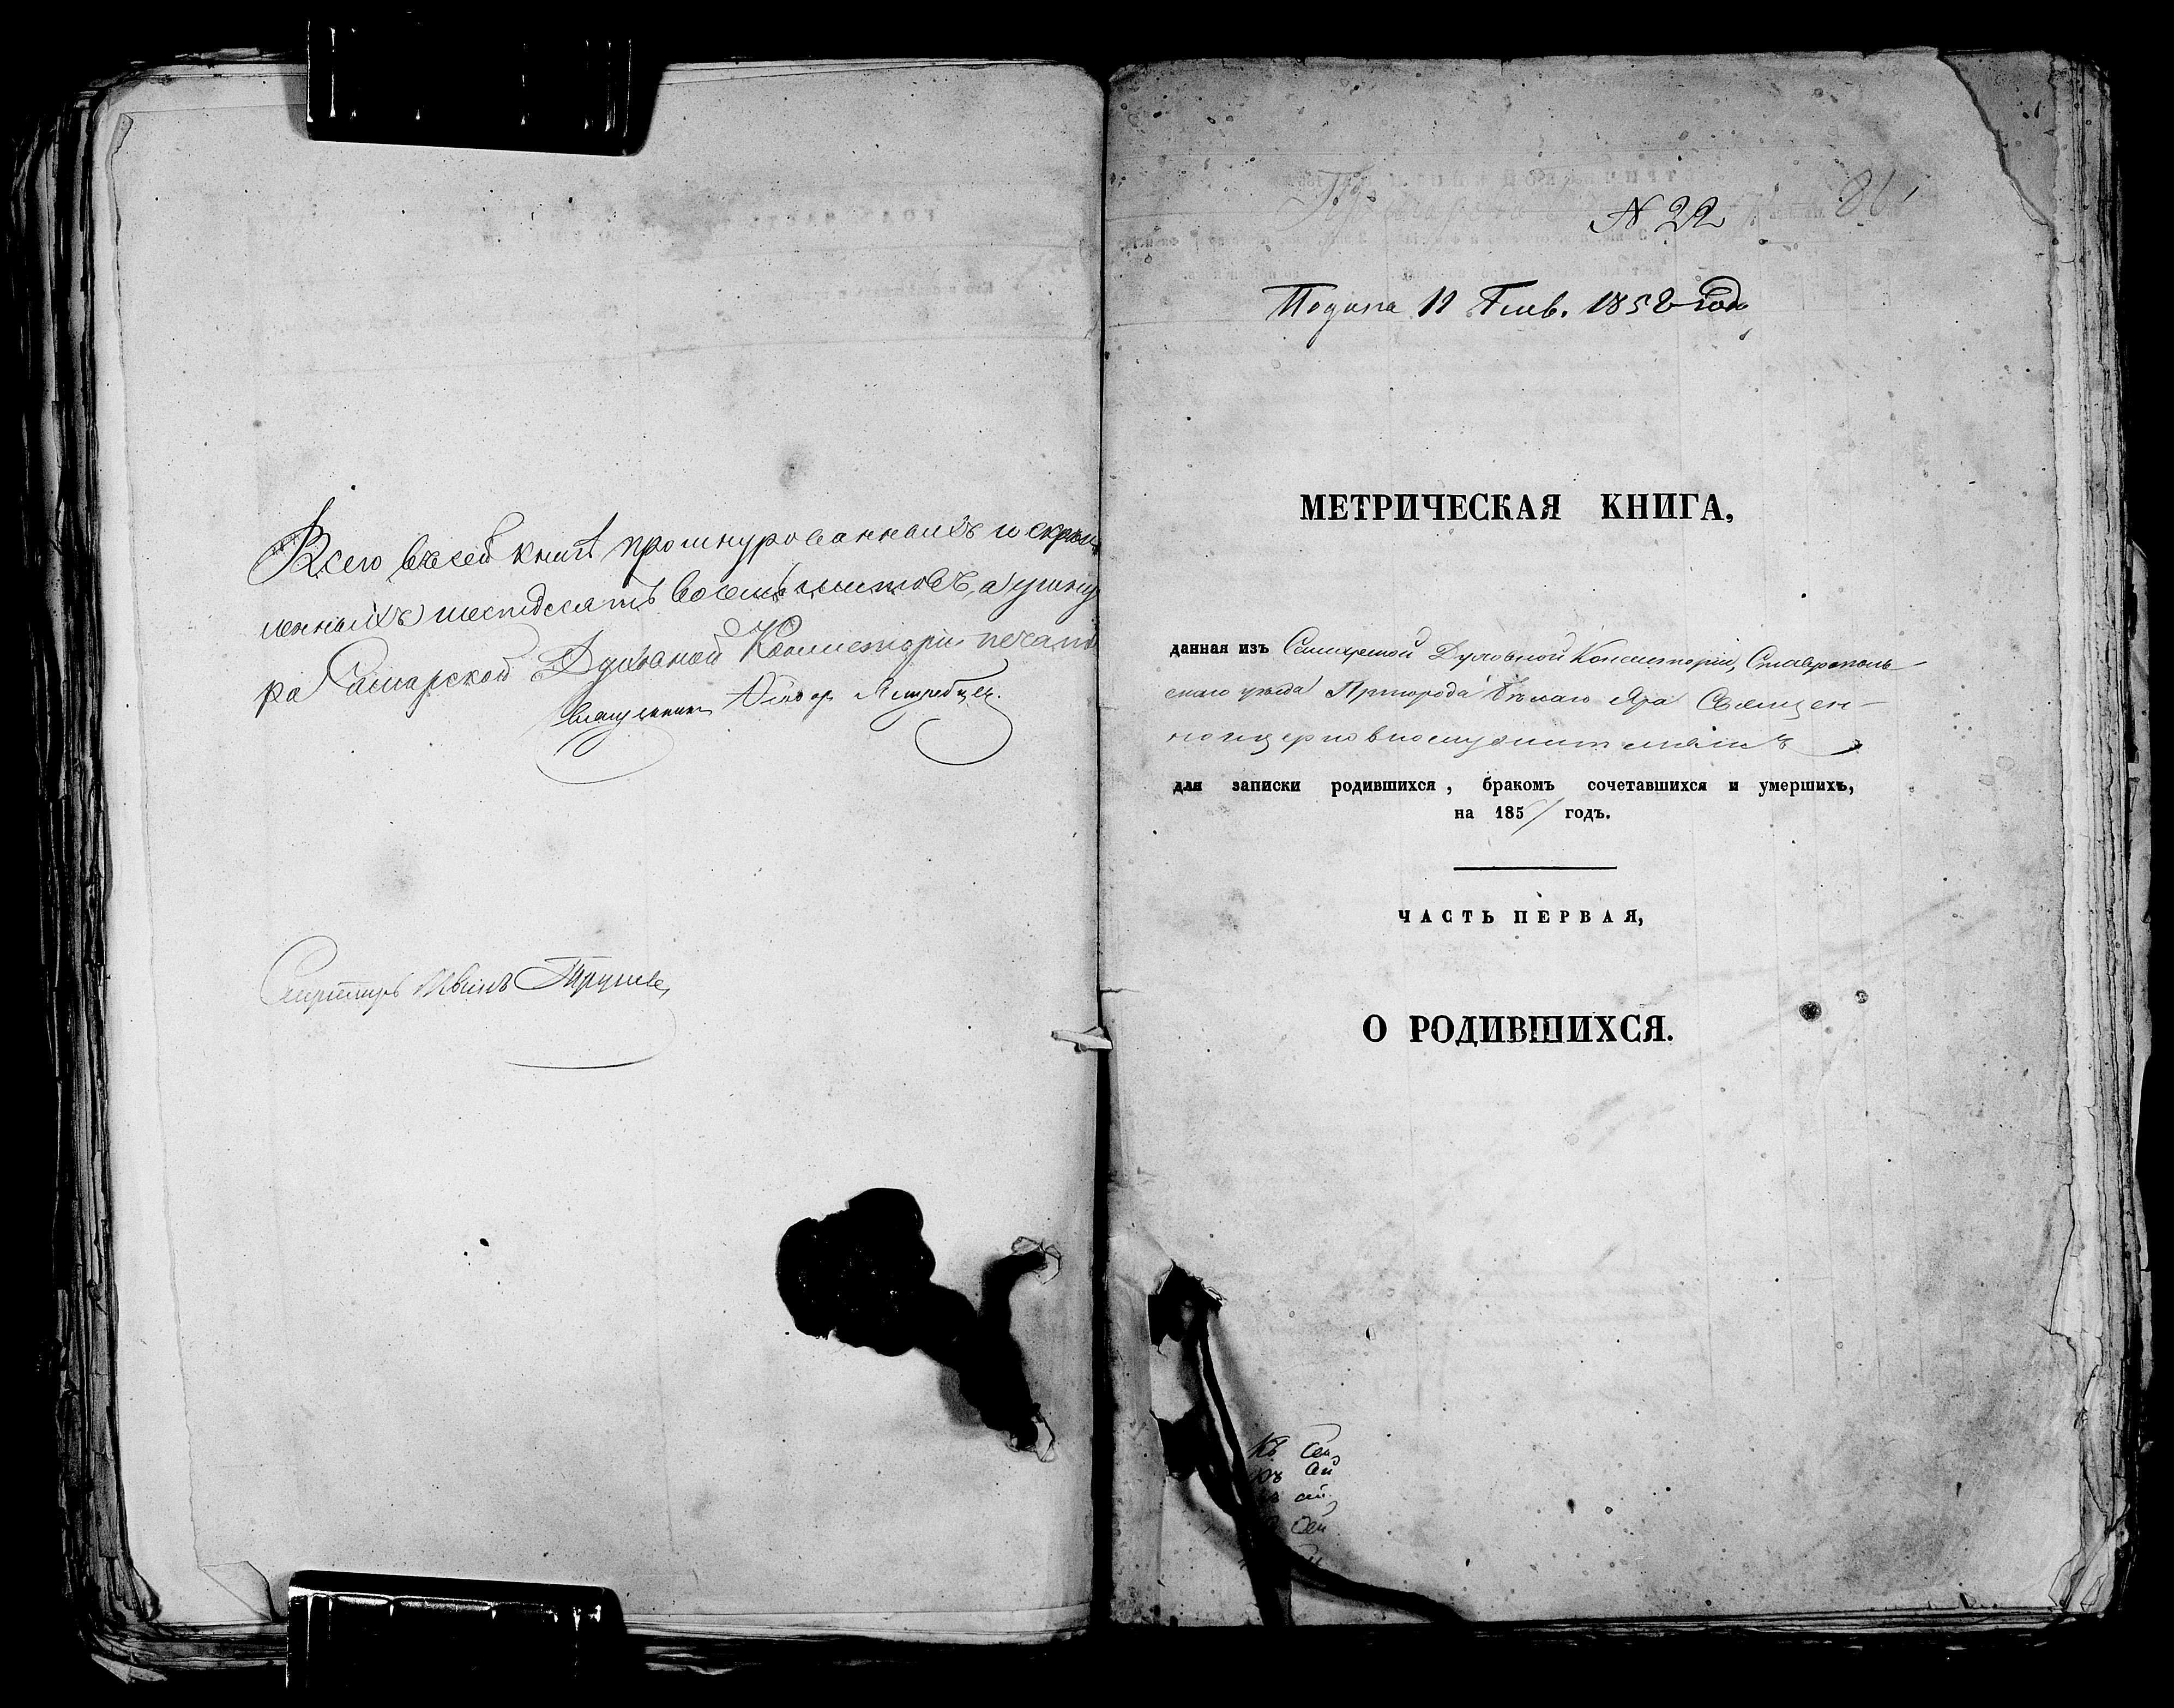 Всего въ сей книгѣ прошнурованныхъ и скрѣп
ленныхъ шестдесятъ восемь листовъ, а у шну
ра Самарской Духовной Консисторіи печать
Секретарь Иванъ
N 22
Подана 11 Генв. 1852 года
МЕТРИЧЕСКАЯ КНИГА,
данная изъ Самарской Духовной Консисторіи, Ставрополь-
скаго уѣзда Пригорода Бѣлаго Яра Священ-
ноцерковнослужителямъ
для записки родившихся, бракомъ сочетавшихся и умершихъ,
на 1851 годъ.
ЧАСТЬ ПЕРВАЯ,
О РОДИВШИХСЯ.